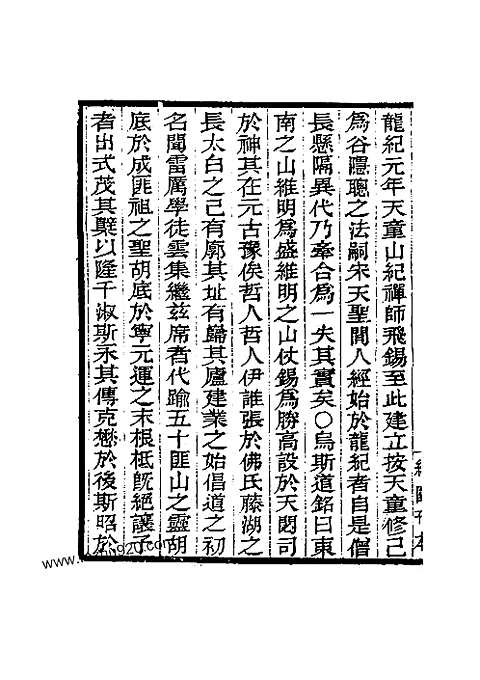 龍紀元年天童山紀禪師飛錫至此建立按天童修己
為谷隱聰之法嗣宋天聖間人經始於龍紀者自是僧
長懸隔異代乃牽合為一失其實矣○烏斯道銘曰東
南之山維明為盛維明之山仗錫為勝高設於天閟司
於神其在元古豫俟哲人哲人伊誰張於佛氏藤湖之
長太白之己有廓其址有歸其廬建業之始倡道之初
名聞雷厲學徒雲集繼茲席者代踰五十匪山之靈胡
底於成匪祖之聖胡底於寧元運之末根柢旣絕讓子
者出式茂其櫱以隆千淑斯承其傳克懋於後斯昭於